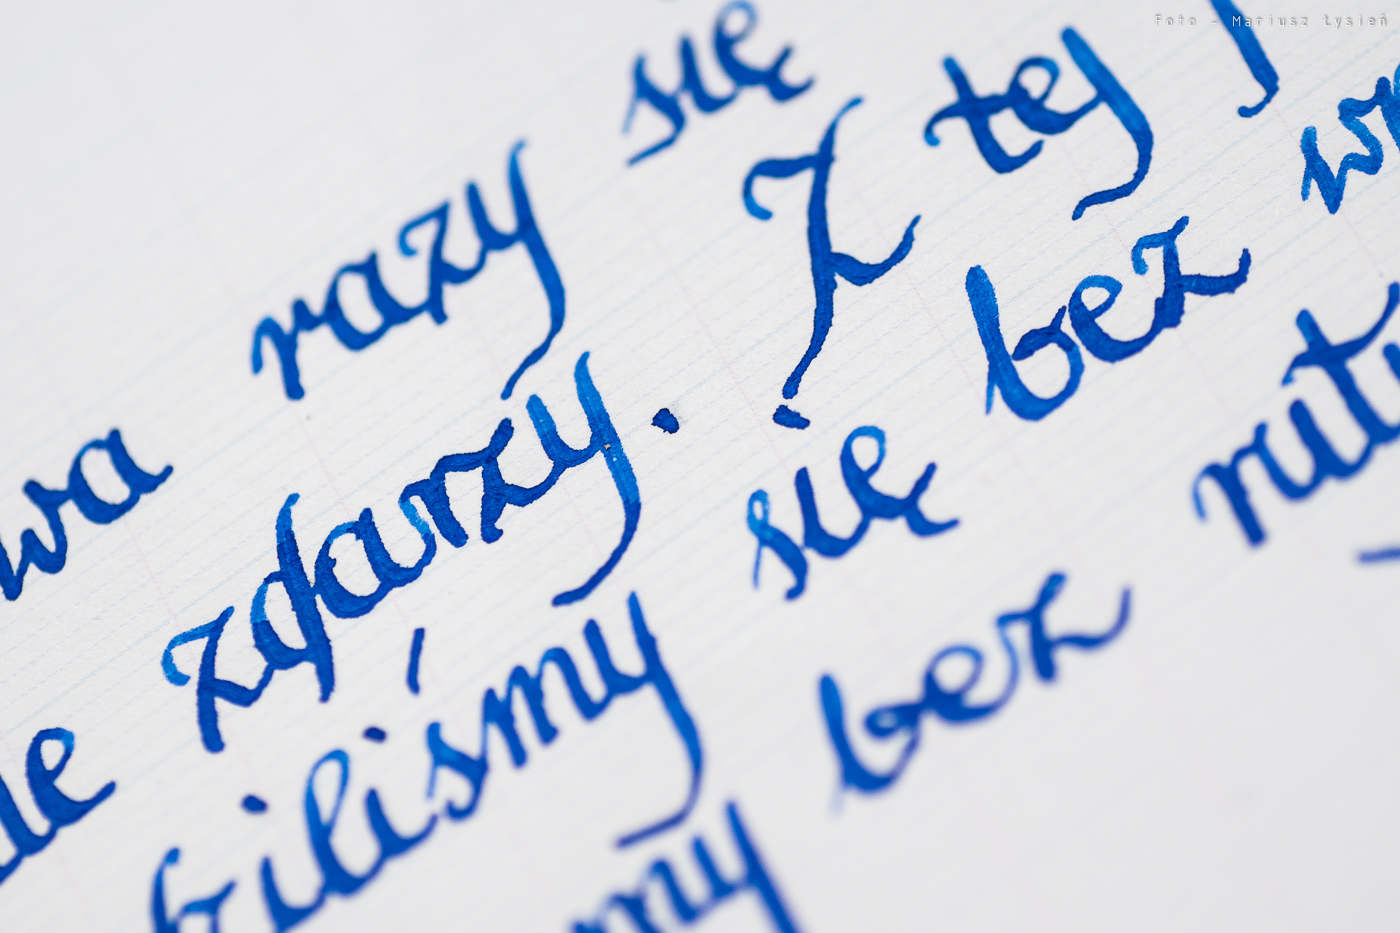 Foto - Mariusz Łysień
wa razy się
ie zdarzy. Z tej
iliśmy się bez wp
my bez ruty